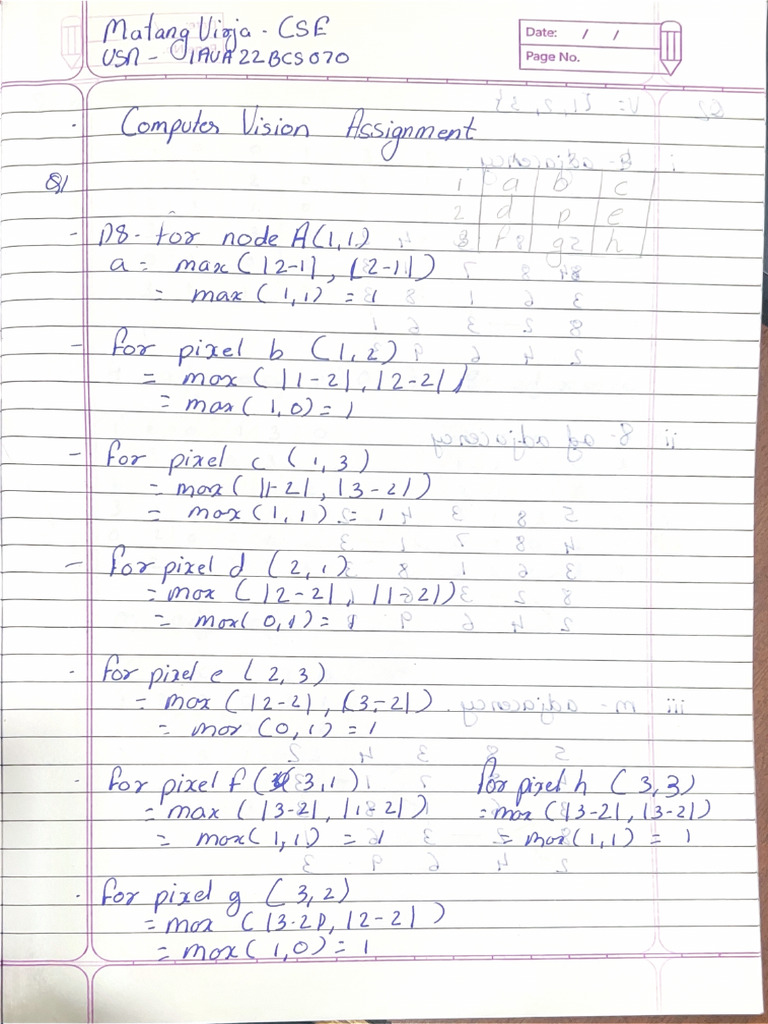 Matang Virja - CSE
USN - 1AUA22BCS070
Date: / /
Page No.
Computer Vision Assignment
Q1
1 a b c
2 d p e
3 f g h
- D8 - for node A(1,1)
a = max(|2-1|, |2-1|)
= max(1,1) = 1
- for pixel b (1,2)
= max(|1-2|, |2-2|)
= max(1,0) = 1
- for pixel c (1,3)
= max(|1-2|, |3-2|)
= max(1,1) = 1
- for pixel d (2,1)
= max(|2-2|, |1-2|)
= max(0,1) = 1
- for pixel e (2,3)
= max(|2-2|, |3-2|)
= max(0,1) = 1
- for pixel f (3,1)
= max(|3-2|, |1-2|)
= max(1,1) = 1
for pixel h (3,3)
= max(|3-2|, |3-2|)
= max(1,1) = 1
- for pixel g (3,2)
= max(|3-2|, |2-2|)
= max(1,0) = 1